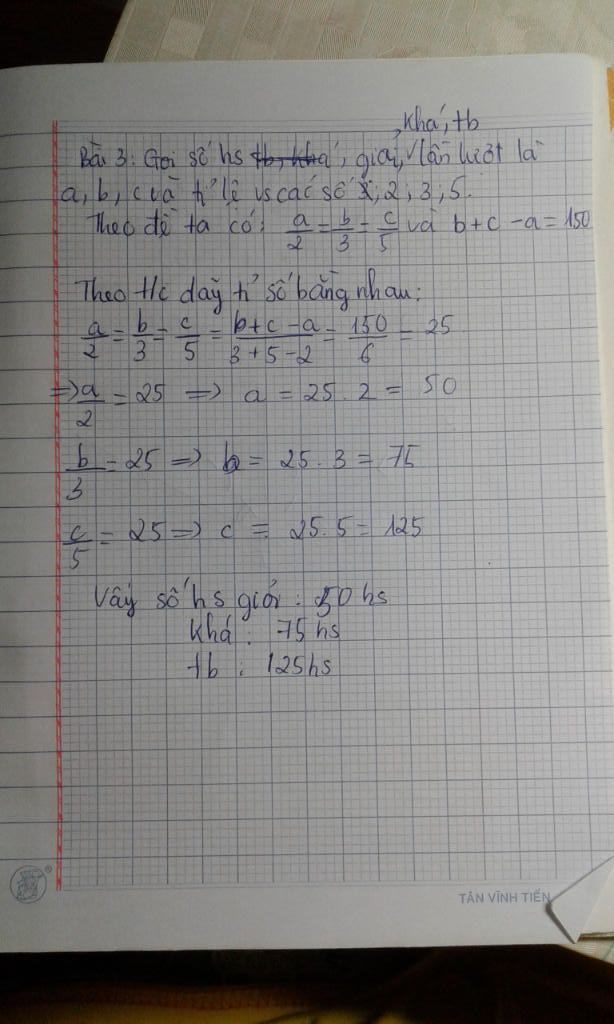 , Khá, tb
Bài 3: Gọi số hs tb, khá, giỏi, lần lượt là
a, b, c và tỉ lệ vs các số 2; 3; 5.
Theo đề ta có: a/2 = b/3 = c/5 và b+c-a=150
Theo t/c dãy tỉ số bằng nhau:
a/2 = b/3 = c/5 = b+c-a/3+5-2 = 150/6 = 25
=> a/2 = 25 => a = 25.2 = 50
b/3 = 25 => b = 25.3 = 75
c/5 = 25 => c = 25.5 = 125
Vậy số hs giỏi: 50 hs
Khá: 75 hs
tb: 125 hs
TÂN VĨNH TIẾN